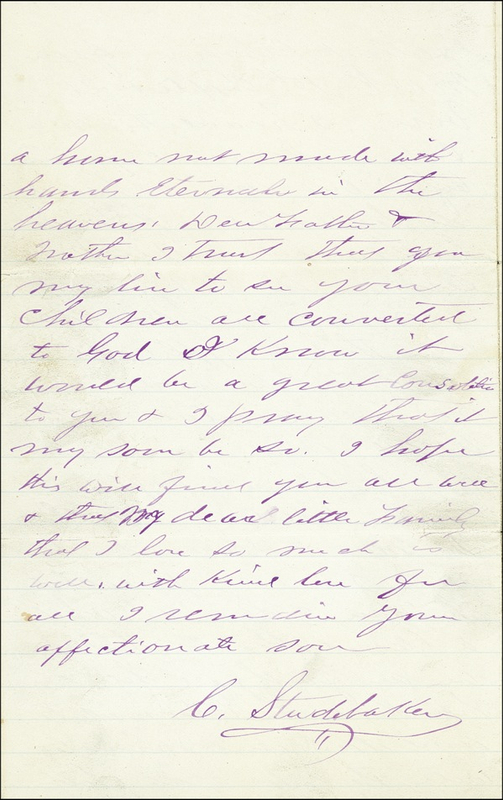 a home not made with
hands Eternale in the
heavens, Dear Father &
Mother I trust that you
my live to see your
children all converted
to God I Know it
would be a great Consolatin
to you & I pray that it
my soon be so. I hope
this will find you all well
& that My dear little Family
that I love so much is
well. with Kind love for
all I remain Your
affectionate son
C. Studebaker